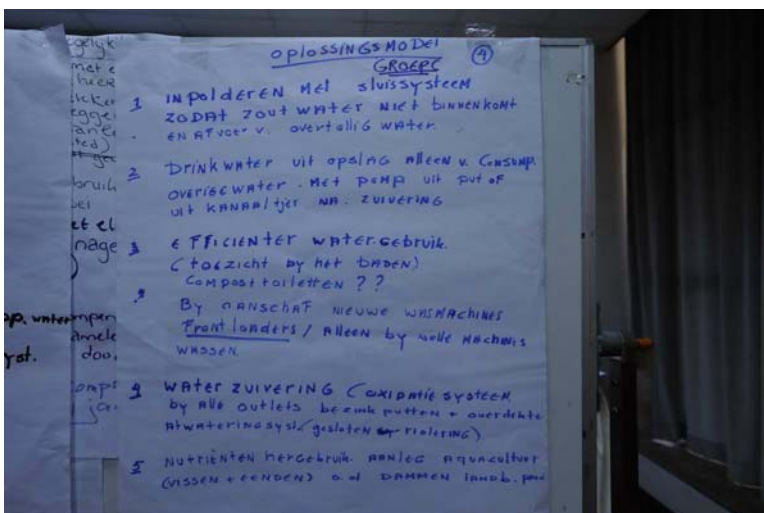 oplossingsmodel
④
GROEP C
1 INpoldereN Met sluissysteem
ZODAT ZOUT WATER NIET binnenkomt
. EN AFVOER v. overtollig water.
2 Drinkwater uit opslag Alleen v. Consump.
overige water. Met pomp uit put of
uit KANAAltjes NA. ZUIVERING
3 EFFICIENTER water.gebruik.
(toezicht by het baden)
Compost toiletten ??
By AANSCHAF NIEUWE WASMACHINES
Front loaders / Alleen by volle machines
wassen.
4 Water ZUIVERING (oxidatie systeem.
by Alle outlets bezink putten + overdekte
Afwateringsyst. (gesloten riolering)
5 Nutriënten hergebruik. AANleg Aquacultuur
(vissen + eenden) o.a DAMMEN landb.
ogelyk
met e
hier
bruik
et el
nage
)
op. water
yst.
mpen
doo
omps